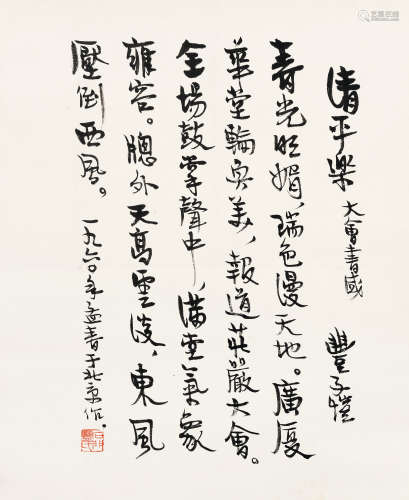 清平樂 大會書感 豐子愷
春光明媚、瑞色漫天地。廣厦
華堂輪奐美、報道莊嚴大會。
全場鼓掌聲中、滿堂氣象
雍容。牕外天高雲淡、東風
壓倒西風。 一九六〇年孟春于北京作。